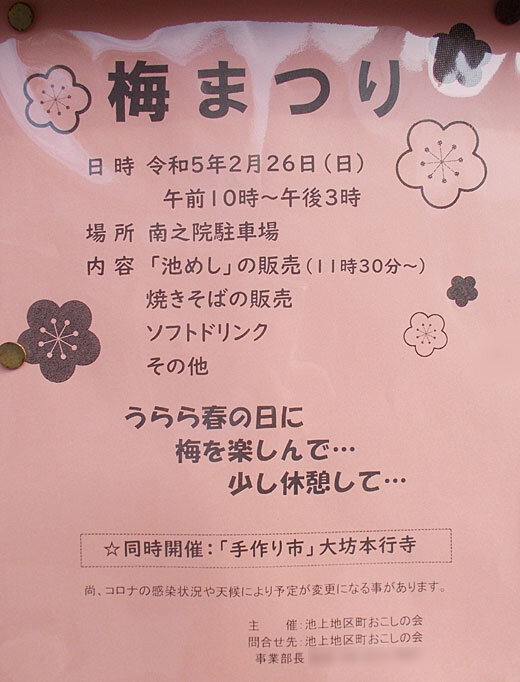 梅まつり
日時 令和5年2月26日（日）
午前10時～午後3時
場所 南之院駐車場
内容 「池めし」の販売（11時30分～）
焼きそばの販売
ソフトドリンク
その他
うらら春の日に
梅を楽しんで…
少し休憩して…
☆同時開催：「手作り市」大坊本行寺
尚、コロナの感染状況や天候により予定が変更になる事があります。
主　催：池上地区町おこしの会
問合せ先：池上地区町おこしの会
事業部長